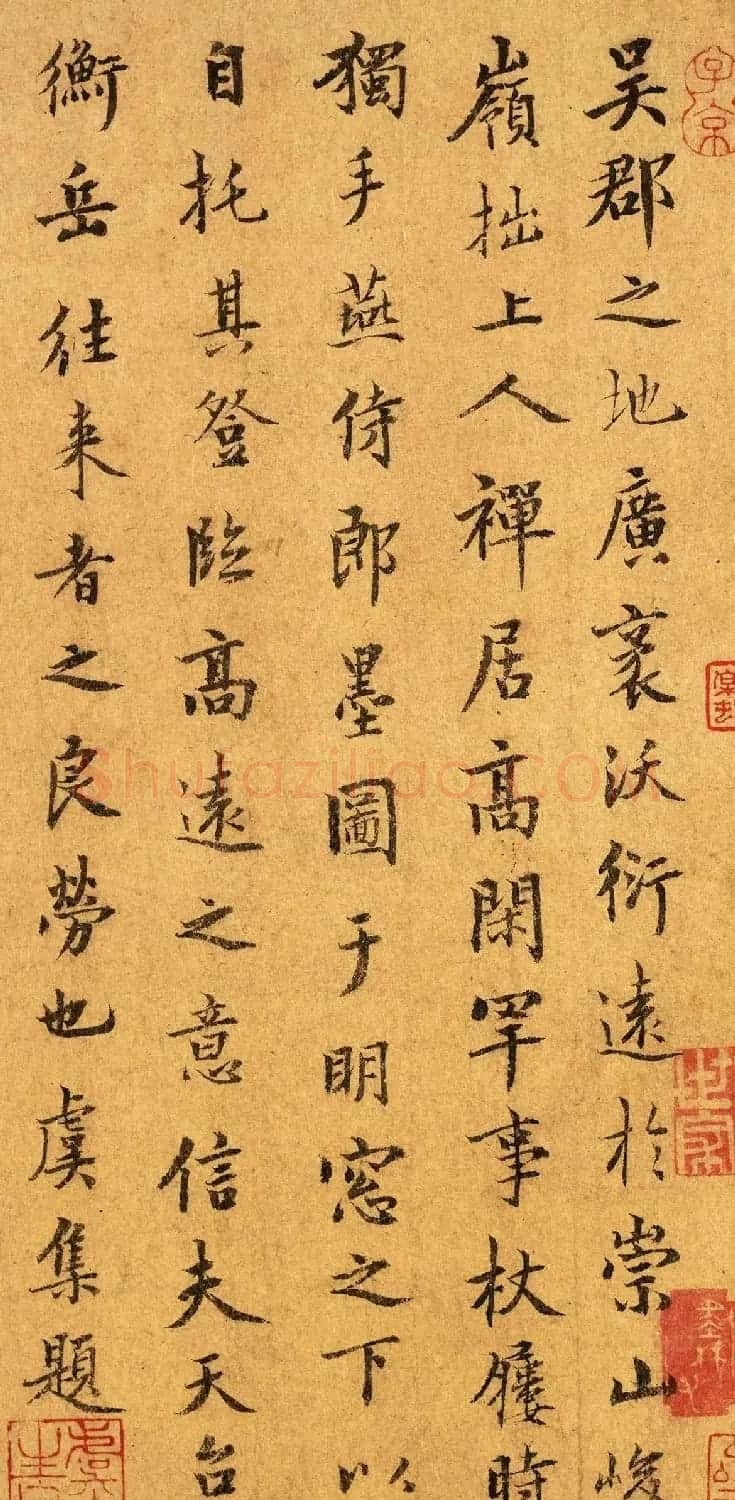 吴郡之地廣袤沃衍遠於崇山峻
嶺拙上人禪居高閑罕事杖屨時
獨手燕侍郎墨圖于明窓之下以
自托其登臨高遠之意信夫天台
衡岳往来者之良勞也虞集題
shufaziliao.com